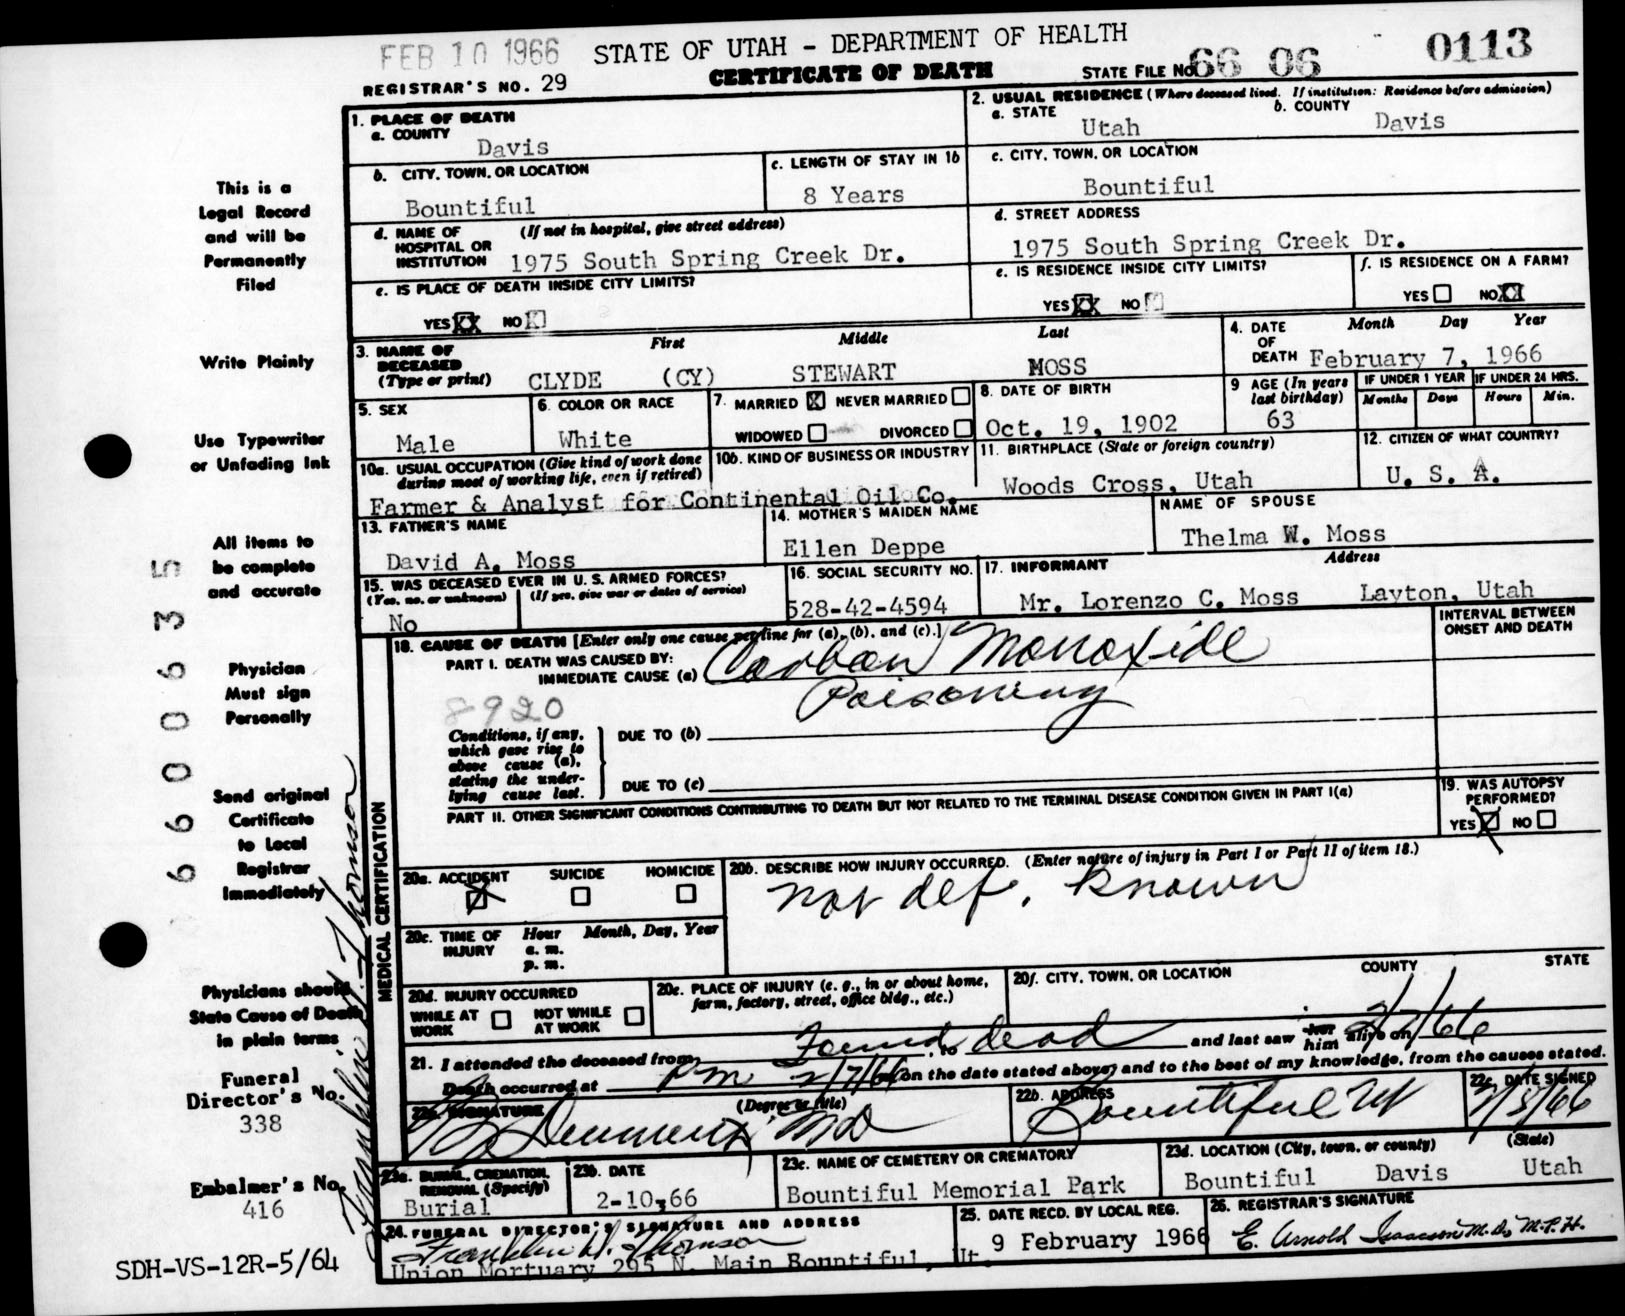 FEB 10 1966 STATE OF UTAH - DEPARTMENT OF HEALTH 0113
REGISTRAR'S NO. 29 CERTIFICATE OF DEATH STATE FILE NO. 66 06
1. PLACE OF DEATH
a. COUNTY
Davis
2. USUAL RESIDENCE (Where deceased lived. If institution: Residence before admission)
a. STATE b. COUNTY
Utah Davis
b. CITY, TOWN, OR LOCATION
Bountiful
c. LENGTH OF STAY IN 1b
8 Years
c. CITY, TOWN, OR LOCATION
Bountiful
d. NAME OF HOSPITAL OR INSTITUTION (If not in hospital, give street address)
1975 South Spring Creek Dr.
d. STREET ADDRESS
1975 South Spring Creek Dr.
e. IS PLACE OF DEATH INSIDE CITY LIMITS?
YES XX NO
e. IS RESIDENCE INSIDE CITY LIMITS?
YES XX NO
f. IS RESIDENCE ON A FARM?
YES NO XX
3. NAME OF DECEASED (Type or print)
First Middle Last
CLYDE (CY) STEWART MOSS
4. DATE OF DEATH
Month Day Year
February 7, 1966
5. SEX
Male
6. COLOR OR RACE
White
7. MARRIED X NEVER MARRIED
WIDOWED DIVORCED
8. DATE OF BIRTH
Oct. 19, 1902
9 AGE (In years last birthday)
63
IF UNDER 1 YEAR
Months Days
IF UNDER 24 HRS.
Hours Min.
10a. USUAL OCCUPATION (Give kind of work done during most of working life, even if retired)
10b. KIND OF BUSINESS OR INDUSTRY
Farmer & Analyst for Continental Oil Co.
11. BIRTHPLACE (State or foreign country)
Woods Cross, Utah
12. CITIZEN OF WHAT COUNTRY?
U. S. A.
13. FATHER'S NAME
David A. Moss
14. MOTHER'S MAIDEN NAME
Ellen Deppe
NAME OF SPOUSE
Thelma W. Moss
15. WAS DECEASED EVER IN U. S. ARMED FORCES?
(Yes, no, or unknown) (If yes, give war or dates of service)
No
16. SOCIAL SECURITY NO.
528-42-4594
17. INFORMANT Address
Mr. Lorenzo C. Moss Layton, Utah
18. CAUSE OF DEATH [Enter only one cause per line for (a), (b), and (c).]
INTERVAL BETWEEN ONSET AND DEATH
PART I. DEATH WAS CAUSED BY:
IMMEDIATE CAUSE (a) Carbon Monoxide
Poisoning
8920
Conditions, if any, which gave rise to above cause (a), stating the underlying cause last.
DUE TO (b)
DUE TO (c)
PART II. OTHER SIGNIFICANT CONDITIONS CONTRIBUTING TO DEATH BUT NOT RELATED TO THE TERMINAL DISEASE CONDITION GIVEN IN PART I(a)
19. WAS AUTOPSY PERFORMED?
YES X NO
MEDICAL CERTIFICATION
20a. ACCIDENT X SUICIDE HOMICIDE
20b. DESCRIBE HOW INJURY OCCURRED. (Enter nature of injury in Part I or Part II of item 18.)
not def. known
20c. TIME OF INJURY Hour Month, Day, Year
a. m.
p. m.
20d. INJURY OCCURRED
WHILE AT WORK NOT WHILE AT WORK
20e. PLACE OF INJURY (e. g., in or about home, farm, factory, street, office bldg., etc.)
20f. CITY, TOWN, OR LOCATION COUNTY STATE
21. I attended the deceased from Found, to dead and last saw her him alive on 2/7/66
Death occurred at P.m. 2/7/66 on the date stated above; and to the best of my knowledge, from the causes stated.
22a. SIGNATURE (Degree or title)
MD
22b. ADDRESS
Bountiful Ut
22c. DATE SIGNED
23a. BURIAL, CREMATION, REMOVAL (Specify)
Burial
23b. DATE
2-10-66
23c. NAME OF CEMETERY OR CREMATORY
Bountiful Memorial Park
23d. LOCATION (City, town, or county) (State)
Bountiful Davis Utah
24. FUNERAL DIRECTOR'S SIGNATURE AND ADDRESS
Franklin W. Thomson
Union Mortuary 295 N. Main Bountiful, Ut.
25. DATE RECD. BY LOCAL REG.
9 February 1966
26. REGISTRAR'S SIGNATURE
E. Arnold Isaacson M.D., M.P.H.
This is a
Legal Record
and will be
Permanently
Filed
Write Plainly
Use Typewriter
or Unfading Ink
All items to
be complete
and accurate
Physician
Must sign
Personally
Send original
Certificate
to Local
Registrar
Immediately
Physicians should
State Cause of Death
in plain terms
Funeral
Director's No.
338
Embalmer's No.
416
SDH-VS-12R-5/64
66006335
Franklin W. Thomson